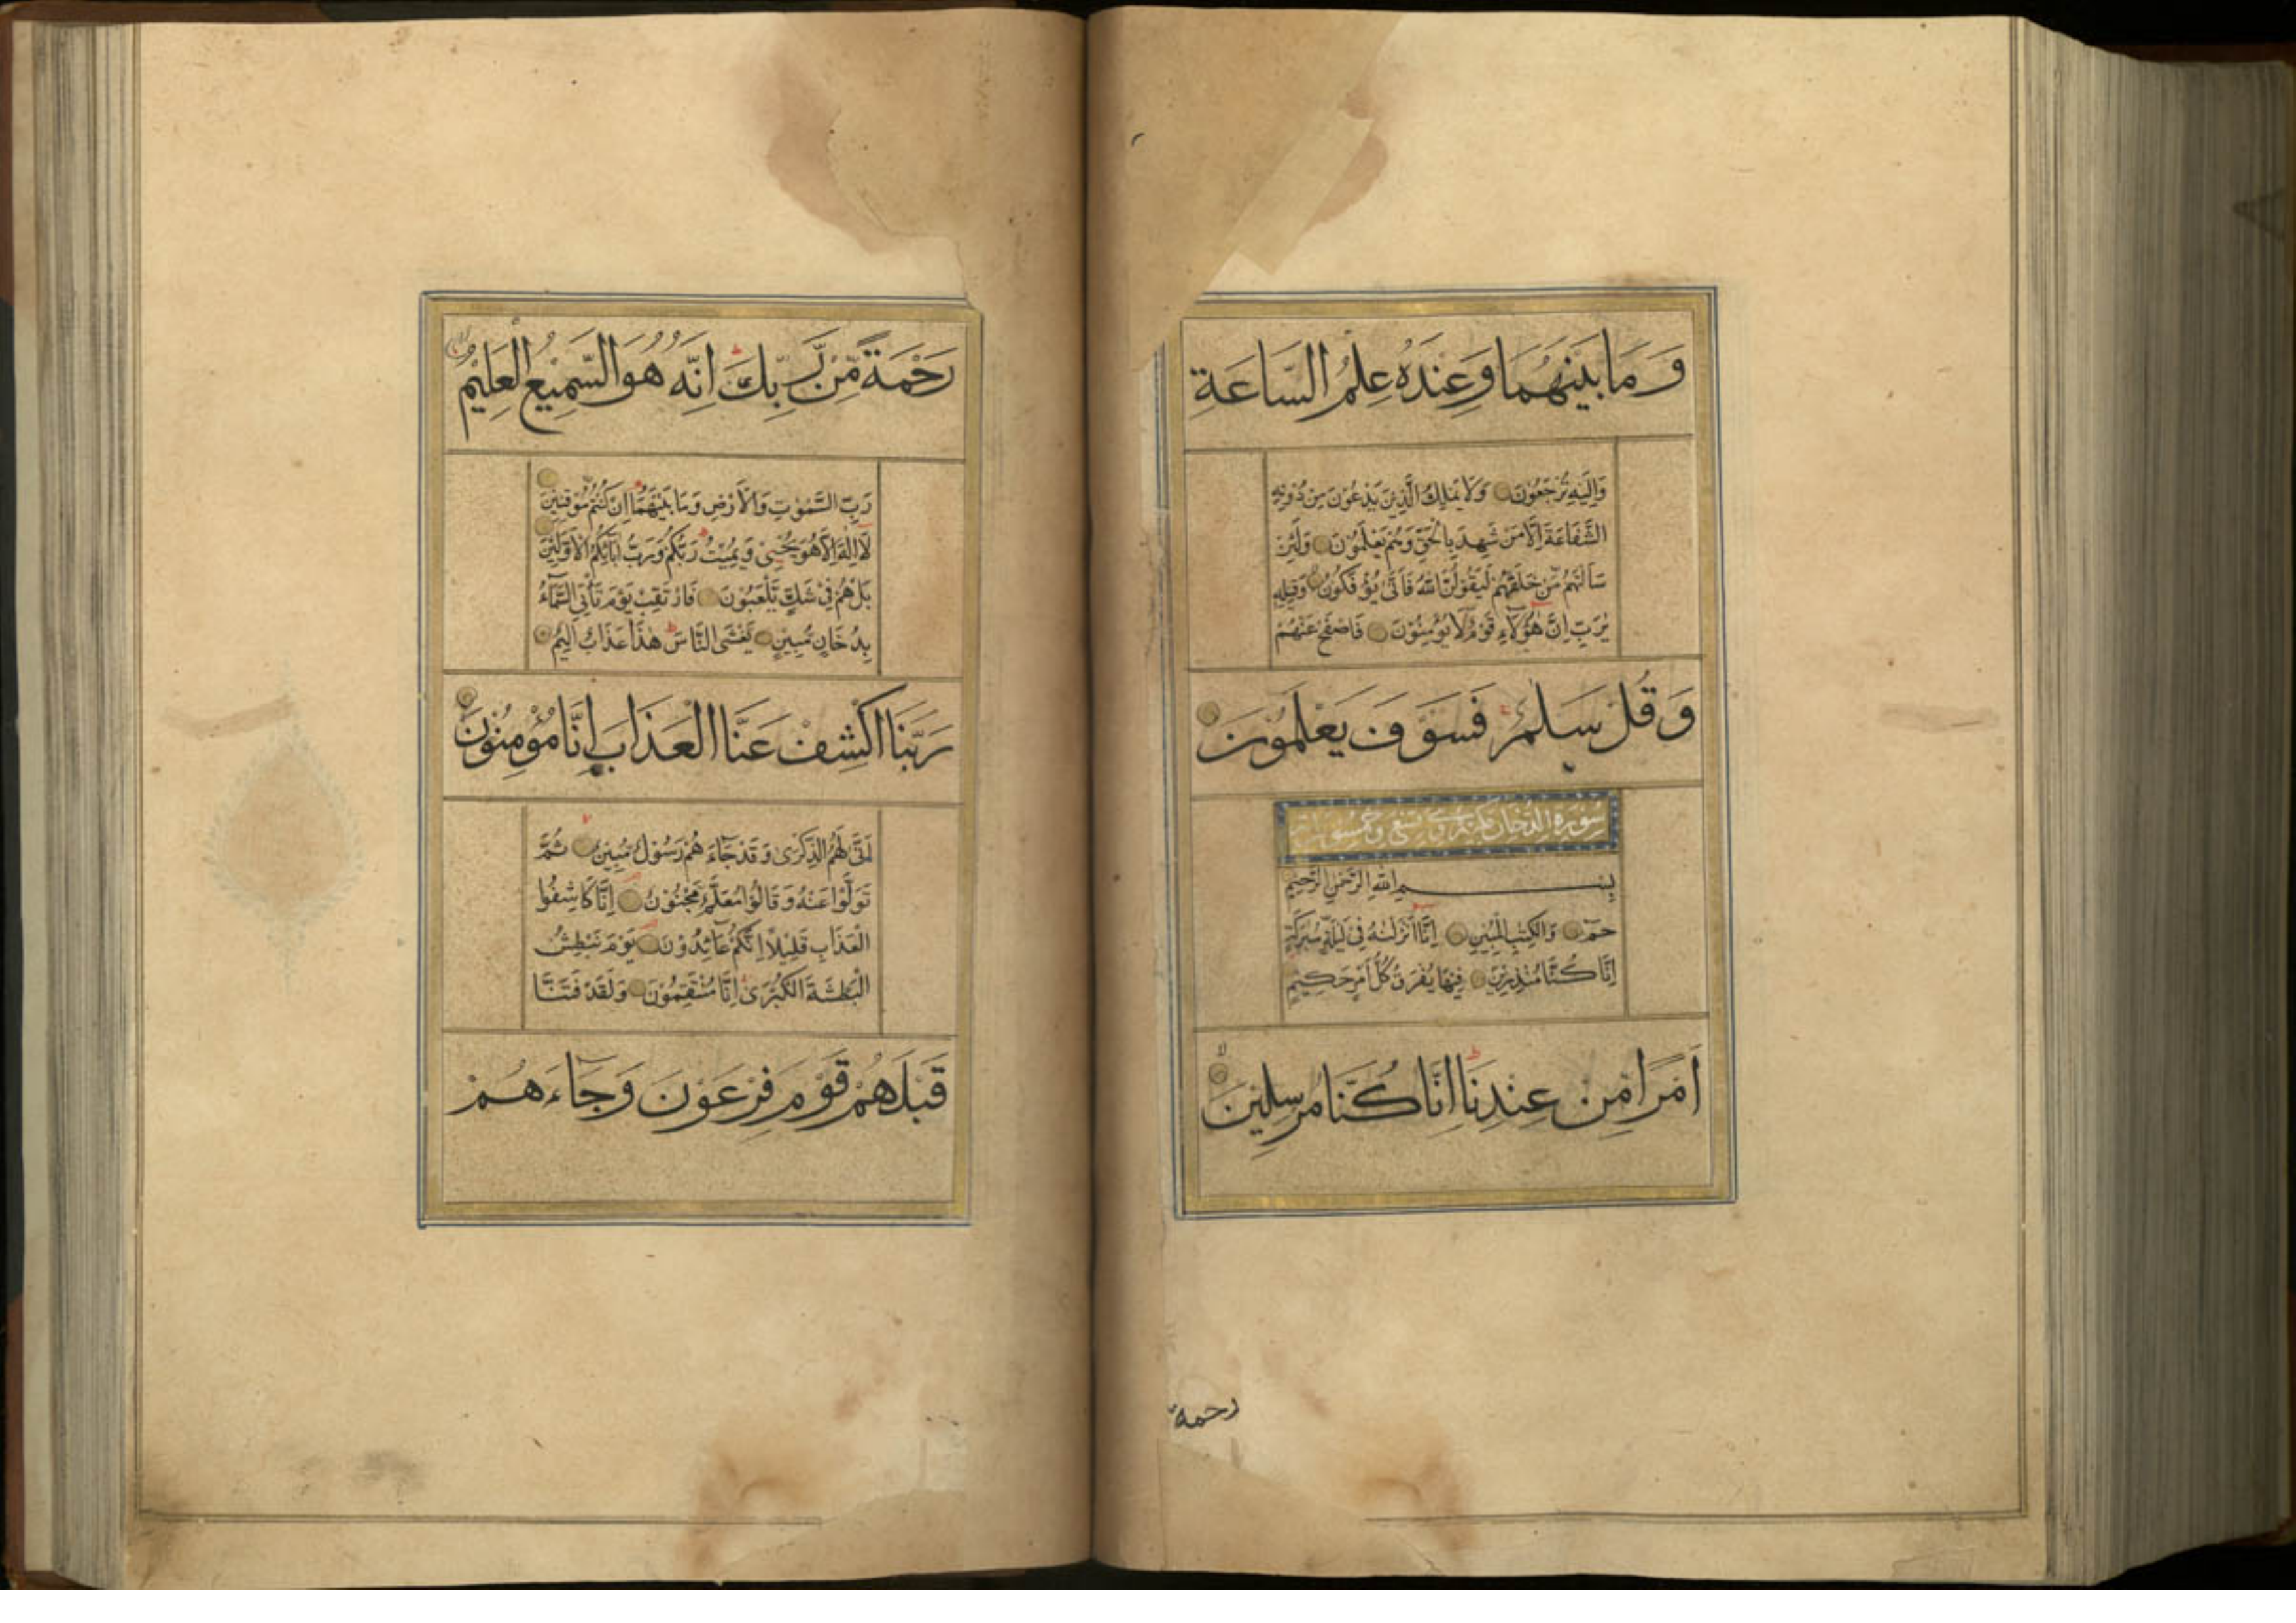 وَمَا بَيْنَهُمَا وَعِنْدَهُ عِلْمُ السَّاعَةِ
وَاِلَيْهِ تُرْجَعُوْنَ وَلَا يَمْلِكُ الَّذِيْنَ يَدْعُوْنَ مِنْ دُوْنِهِ
الشَّفَاعَةَ اِلَّا مَنْ شَهِدَ بِالْحَقِّ وَهُمْ يَعْلَمُوْنَ وَلَئِنْ
سَاَلْتَهُمْ مَّنْ خَلَقَهُمْ لَيَقُوْلُنَّ اللّٰهُ فَاَنّٰى يُؤْفَكُوْنَ وَقِيْلِهِ
يٰرَبِّ اِنَّ هٰٓؤُلَآءِ قَوْمٌ لَا يُؤْمِنُوْنَ فَاصْفَحْ عَنْهُمْ
وَقُلْ سَلٰمٌ فَسَوْفَ يَعْلَمُوْنَ
سُوْرَةُ الدُّخَانِ مكية وهى تسع وخمسون اية
بِسْمِ اللّٰهِ الرَّحْمٰنِ الرَّحِيْمِ
حٰمٓ وَالْكِتٰبِ الْمُبِيْنِ اِنَّا اَنْزَلْنٰهُ فِيْ لَيْلَةٍ مُّبٰرَكَةٍ
اِنَّا كُنَّا مُنْذِرِيْنَ فِيْهَا يُفْرَقُ كُلُّ اَمْرٍ حَكِيْمٍ
اَمْرًا مِنْ عِنْدِنَا اِنَّا كُنَّا مُرْسِلِيْنَ
رحمة
رَحْمَةً مِّنْ رَّبِّكَ اِنَّهُ هُوَ السَّمِيْعُ الْعَلِيْمُ
رَبِّ السَّمٰوٰتِ وَالْاَرْضِ وَمَا بَيْنَهُمَا اِنْ كُنْتُمْ مُّوْقِنِيْنَ
لَآ اِلٰهَ اِلَّا هُوَ يُحْيٖ وَيُمِيْتُ رَبُّكُمْ وَرَبُّ اٰبَآئِكُمُ الْاَوَّلِيْنَ
بَلْ هُمْ فِيْ شَكٍّ يَّلْعَبُوْنَ فَارْتَقِبْ يَوْمَ تَأْتِي السَّمَآءُ
بِدُخَانٍ مُّبِيْنٍ يَّغْشَى النَّاسَ هٰذَا عَذَابٌ اَلِيْمٌ
رَبَّنَا اكْشِفْ عَنَّا الْعَذَابَ اِنَّا مُؤْمِنُوْنَ
اَنّٰى لَهُمُ الذِّكْرٰى وَقَدْ جَآءَهُمْ رَسُوْلٌ مُّبِيْنٌ ثُمَّ
تَوَلَّوْا عَنْهُ وَقَالُوْا مُعَلَّمٌ مَّجْنُوْنٌ اِنَّا كَاشِفُوا
الْعَذَابِ قَلِيْلًا اِنَّكُمْ عَآئِدُوْنَ يَوْمَ نَبْطِشُ
الْبَطْشَةَ الْكُبْرٰى اِنَّا مُنْتَقِمُوْنَ وَلَقَدْ فَتَنَّا
قَبْلَهُمْ قَوْمَ فِرْعَوْنَ وَجَآءَهُمْ